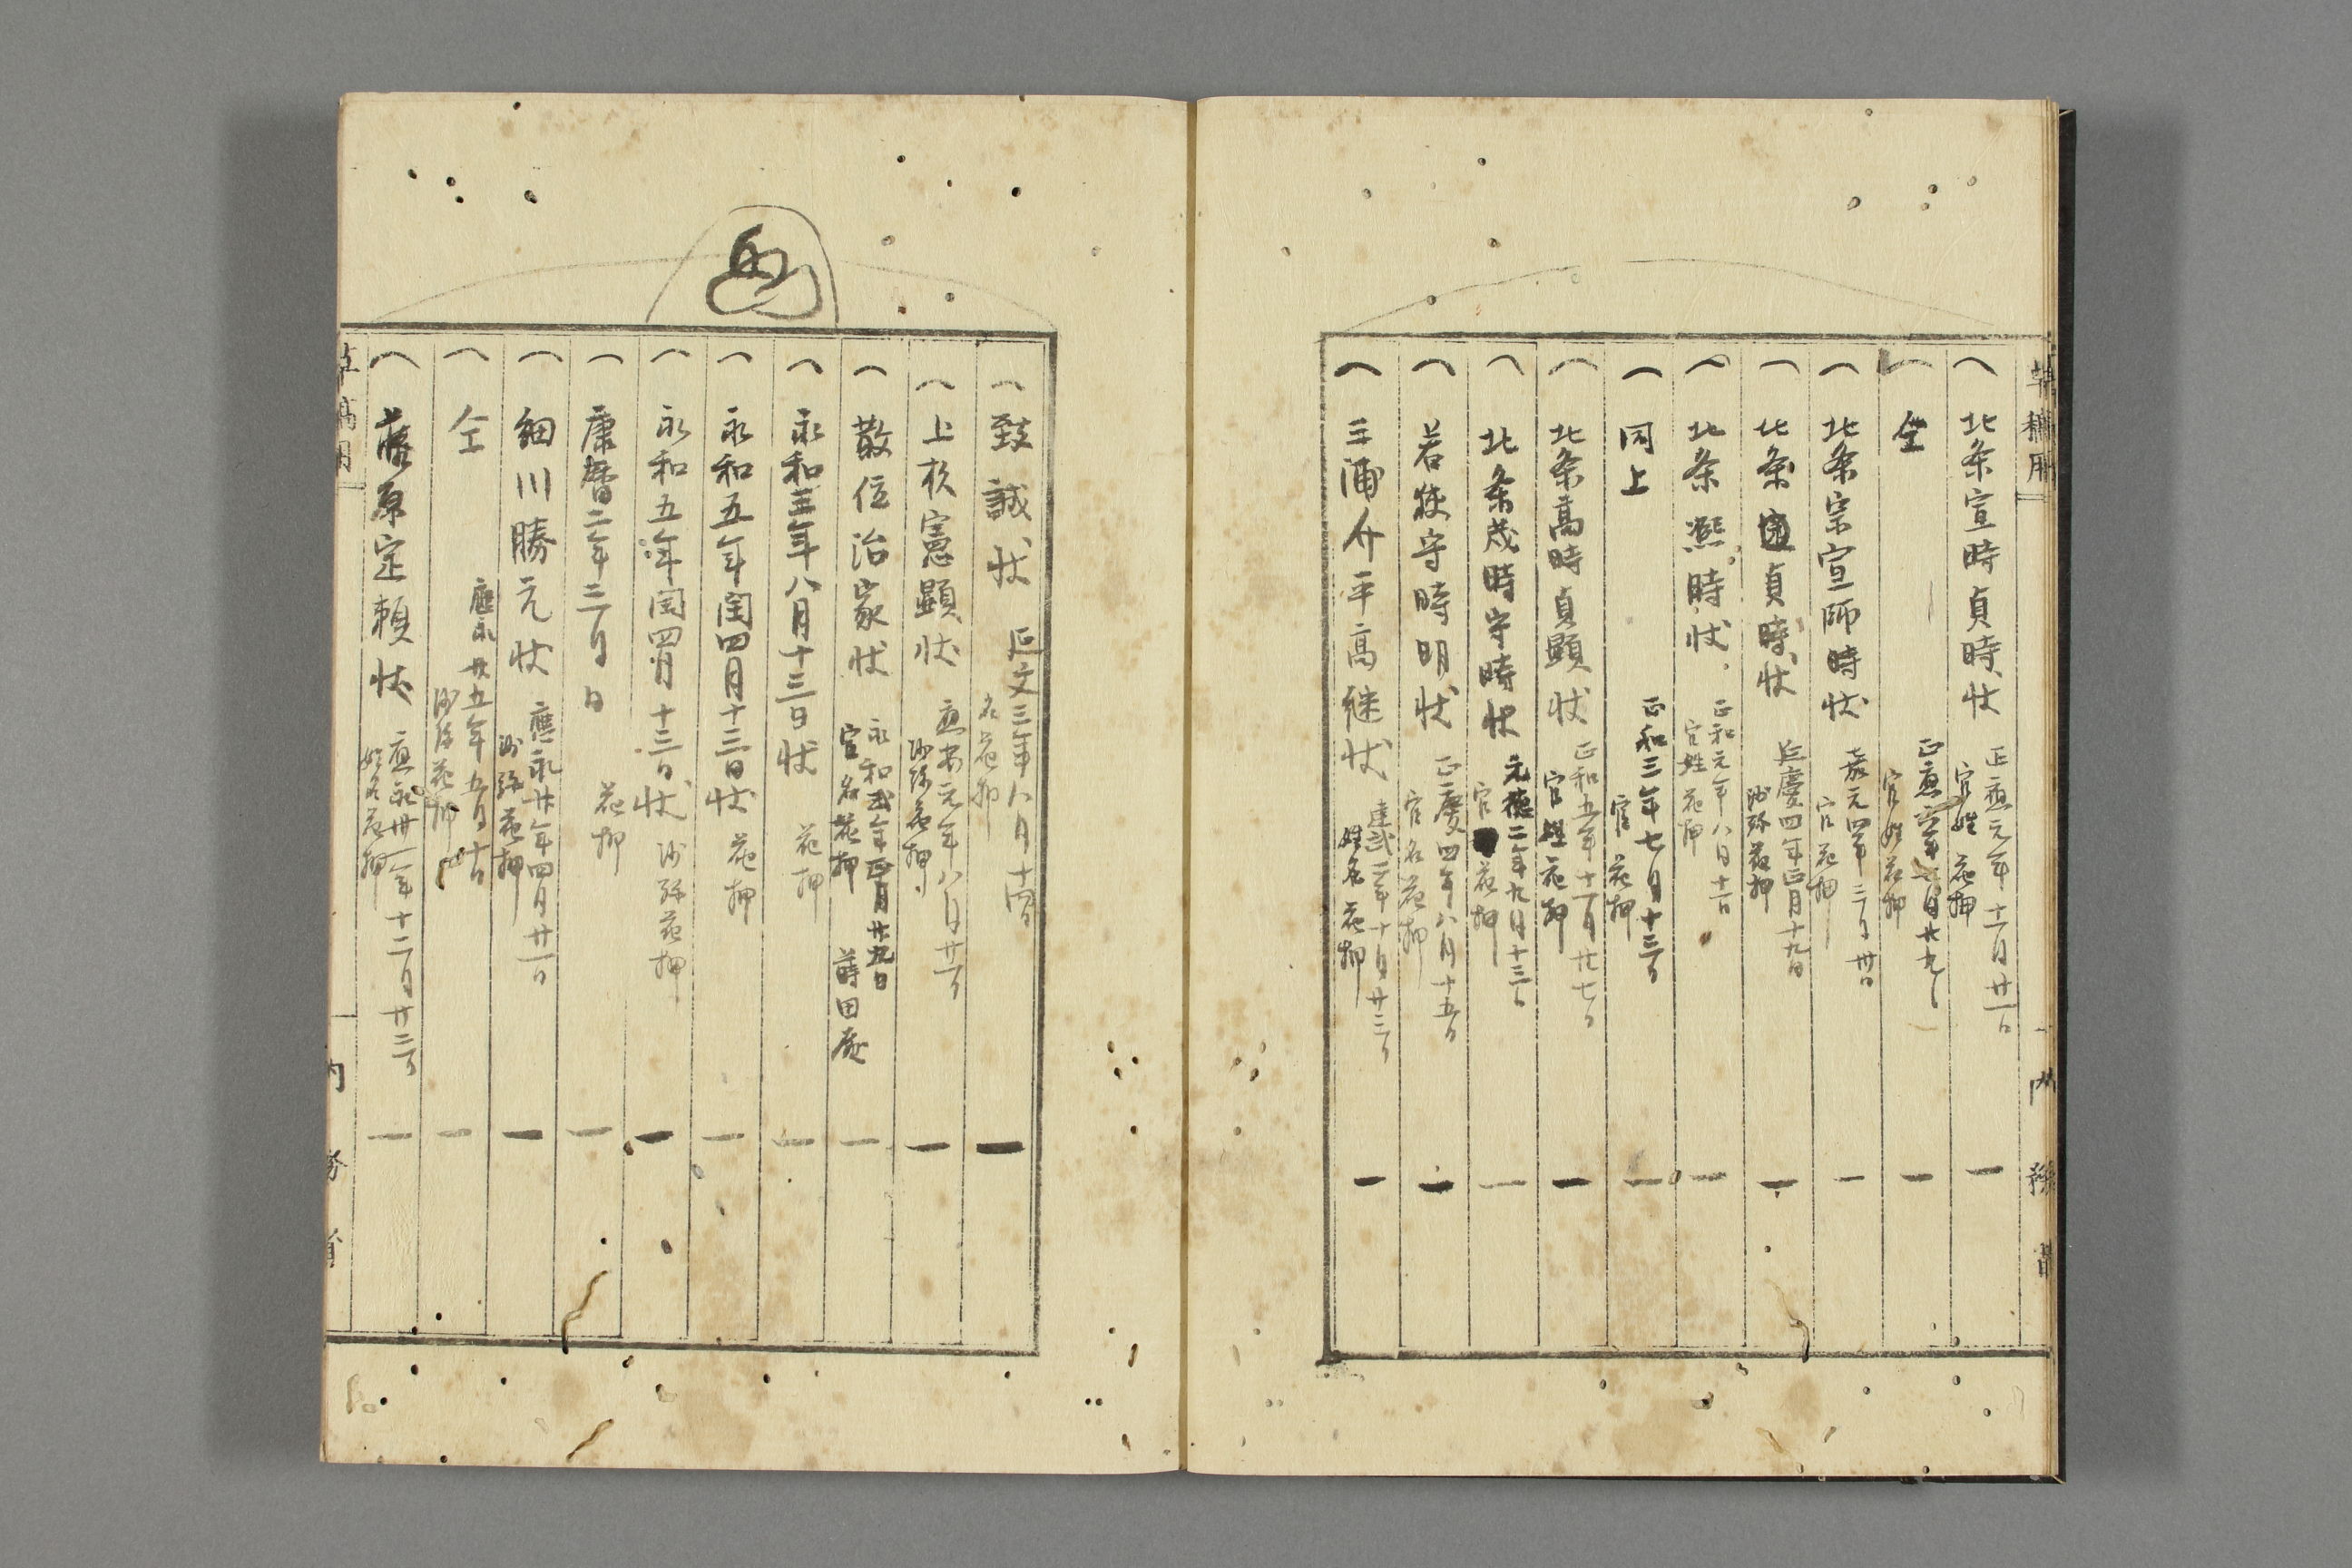 草稿用
内務省
北条宣時貞時状
正應元年十一月廿一日
官姓花押
仝
正應
官姓花押
北条宗宣師時状
嘉元四年三月卅日
官花押
北条貞時状
延慶四年正月十九日
沙弥花押
北条熙時状
正和元年八月十一日
官姓花押
同上
正和三年七月十三日
官花押
北条高時貞顕状
正和五年十一月廿七日
官姓花押
北条茂時守時状
元徳二年九月十三日
官花押
若狭守時明状
正慶四年八月十五日
官名花押
三浦介平高継状
建武二年十月廿三日
姓名花押
致誠状
延文三年八月十四日
名花押
上杉憲顕状
應安元年八月廿一日
沙弥花押
散位治家状
永和弐年正月廿九日
官名花押
蒔田殿
永和三年八月十三日状
花押
永和五年閏四月十三日状
花押
永和五年閏四月十三日状
沙弥花押
康暦二年三月日
花押
細川勝元状
應永廿年四月廿一日
沙弥花押
仝
應永廿五年五月十日
沙弥花押
藤原定頼状
應永卅一年十二月廿三日
姓名花押
草稿用
内務省